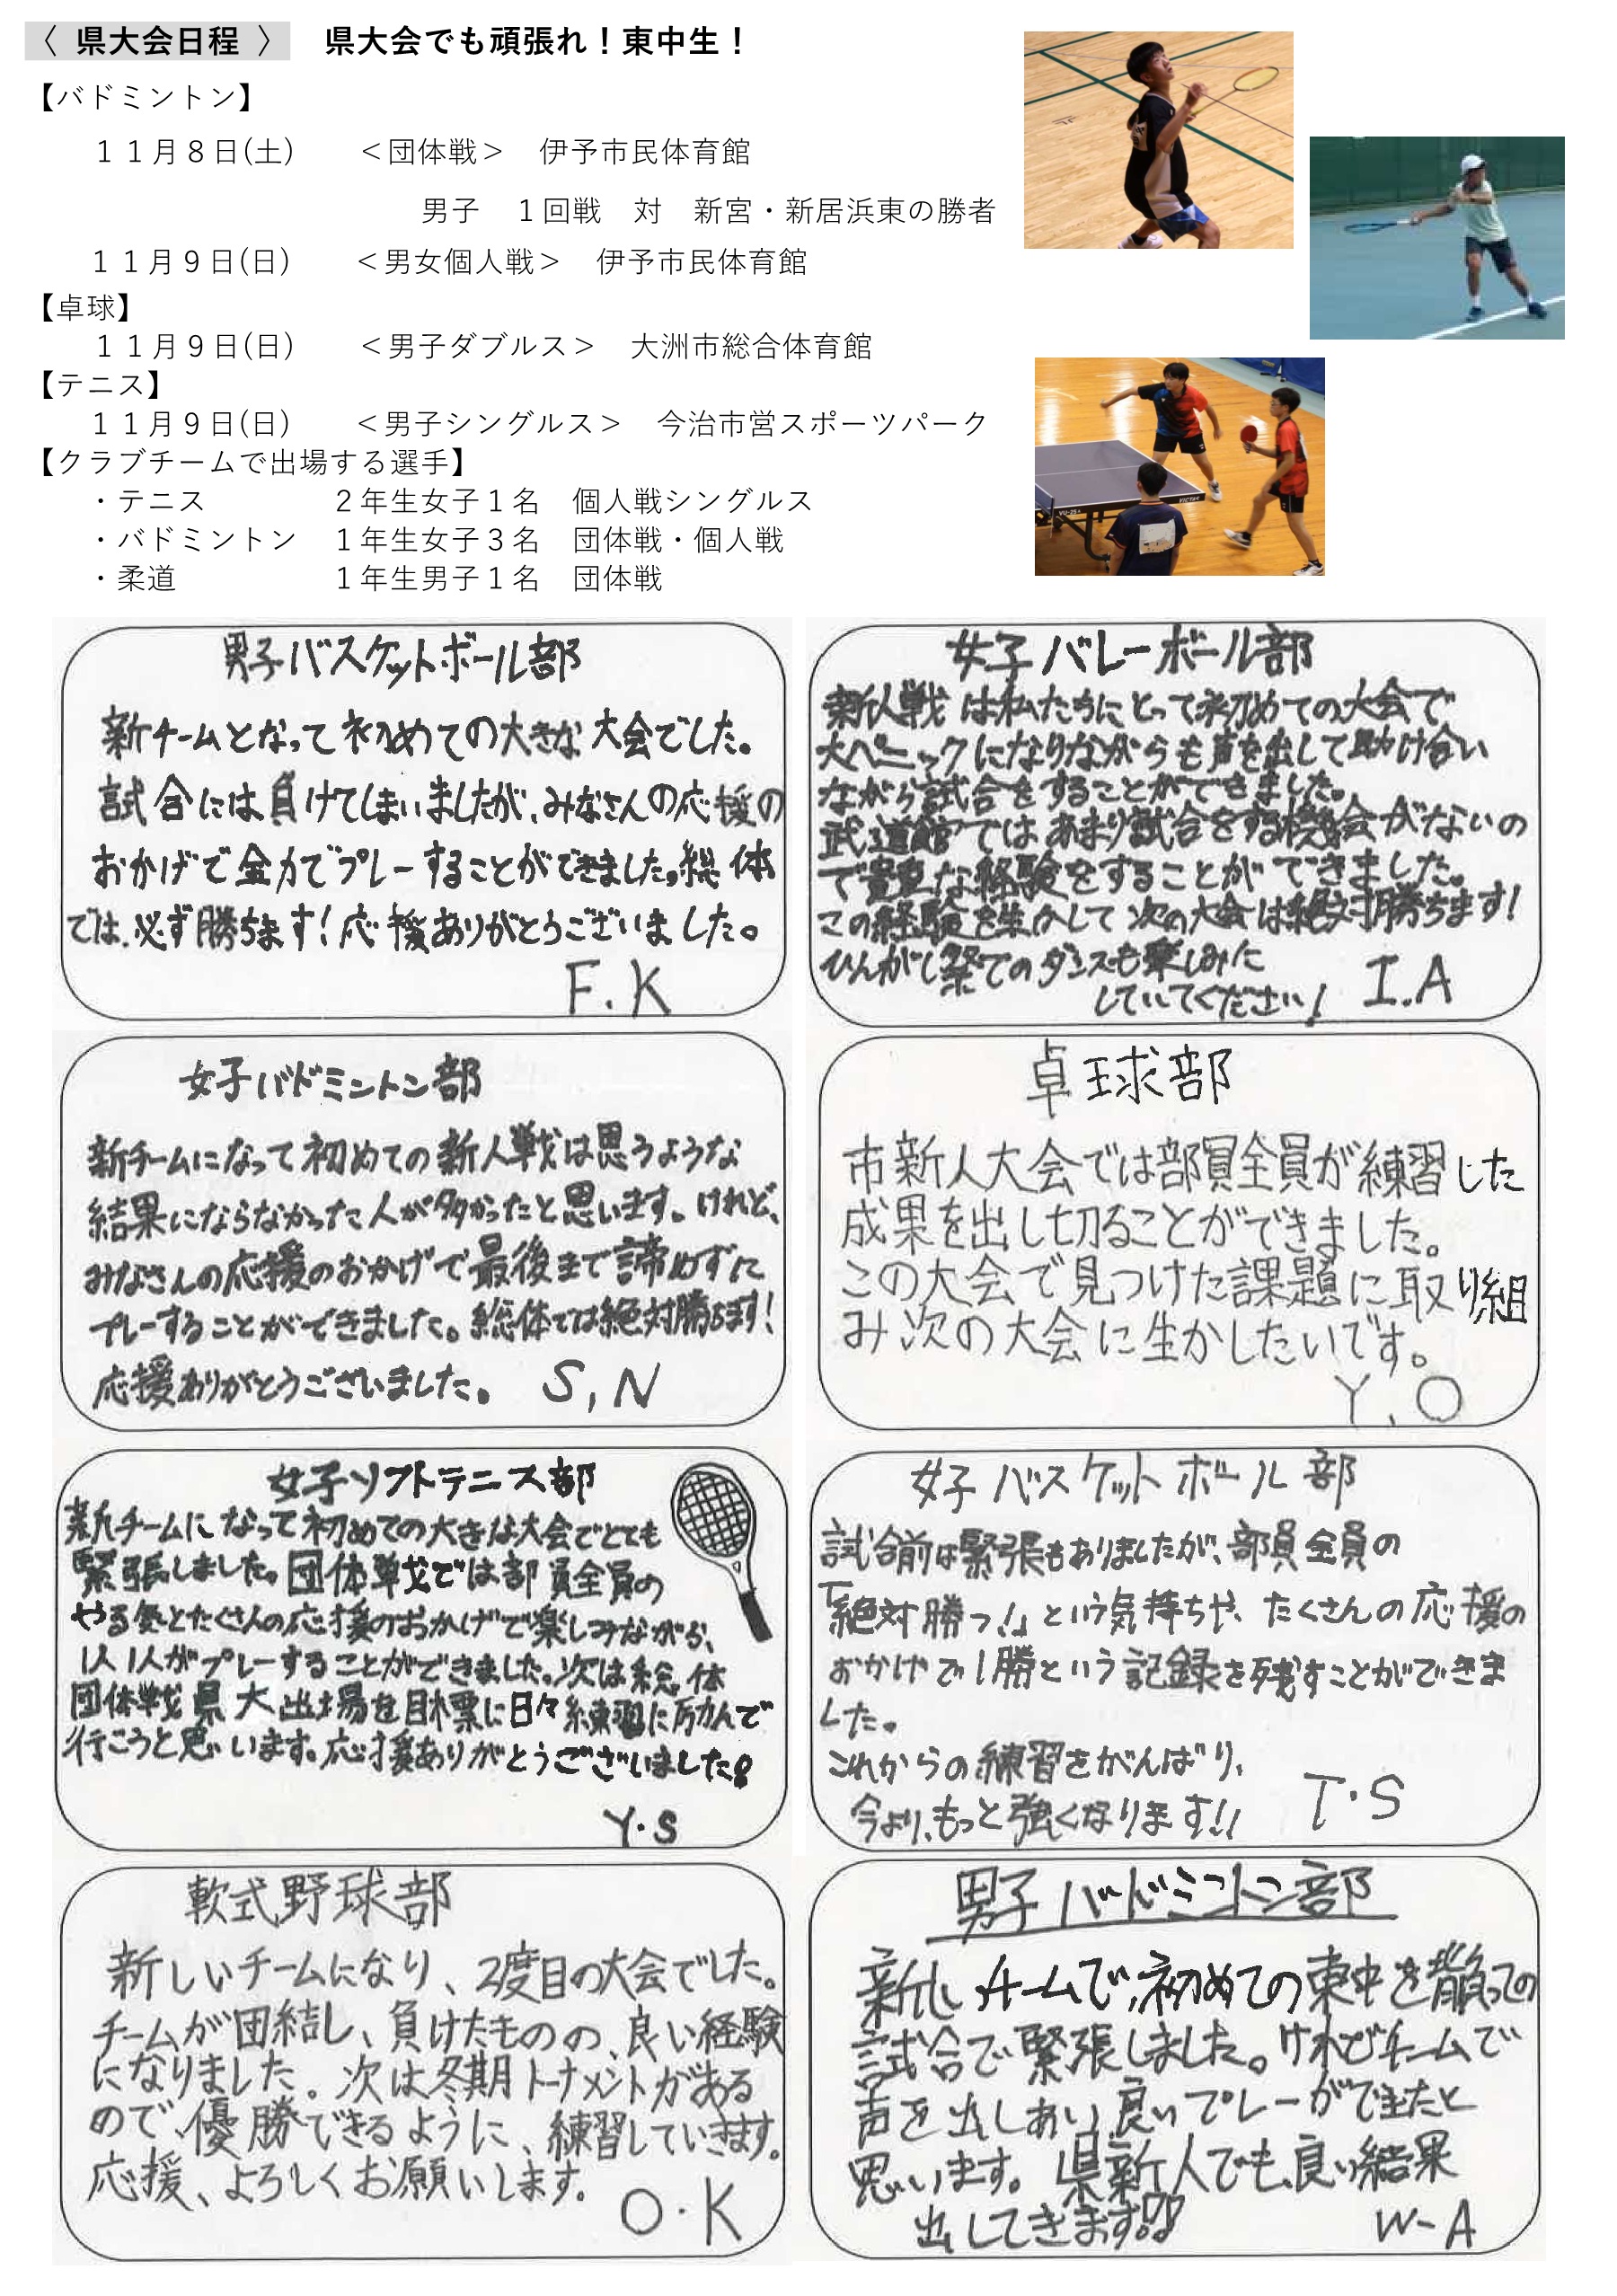 〈 県大会日程 〉　県大会でも頑張れ！東中生！
【バドミントン】
１１月８日(土)　＜団体戦＞　伊予市民体育館
男子　１回戦　対　新宮・新居浜東の勝者
１１月９日(日)　＜男女個人戦＞　伊予市民体育館
【卓球】
１１月９日(日)　＜男子ダブルス＞　大洲市総合体育館
【テニス】
１１月９日(日)　＜男子シングルス＞　今治市営スポーツパーク
【クラブチームで出場する選手】
・テニス　２年生女子１名　個人戦シングルス
・バドミントン　１年生女子３名　団体戦・個人戦
・柔道　１年生男子１名　団体戦
男子バスケットボール部
新チームとなって初めての大きな大会でした。
試合には負けてしまいましたが、みなさんの応援の
おかげで全力でプレーすることができました。総体
では、必ず勝ちます！応援ありがとうございました。
F.K
女子バレーボール部
新人戦は私たちにとって初めての大会で
大パニックになりながらも声を出して助け合い
ながら試合をすることができました。
武道館ではあまり試合をする機会がないの
で貴重な経験をすることができました。
この経験を生かして次の大会は絶対勝ちます！
ひんがし祭でのダンスも楽しみに
していてください！
I.A
女子バドミントン部
新チームになって初めての新人戦は思うような
結果にならなかった人が多かったと思います。けれど、
みなさんの応援のおかげで最後まで諦めずに
プレーすることができました。総体では絶対勝ちます！
応援ありがとうございました。
S,N
卓球部
市新人大会では部員全員が練習した
成果を出し切ることができました。
この大会で見つけた課題に取り組
み次の大会に生かしたいです。
Y.O
女子ソフトテニス部
新チームになって初めての大きな大会でとても
緊張しました。団体戦では部員全員の
やる気とたくさんの応援のおかげで楽しみながら、
1人1人がプレーすることができました。次は総体
団体戦県大出場を目標に日々練習に励んで
行こうと思います。応援ありがとうございました!
Y・S
女子バスケットボール部
試合前は緊張もありましたが、部員全員の
「絶対勝つ!」という気持ちや、たくさんの応援の
おかげで1勝という記録を残すことができま
した。
これからの練習をがんばり、
今より、もっと強くなります!!
T・S
軟式野球部
新しいチームになり、2度目の大会でした。
チームが団結し、負けたものの、良い経験
になりました。次は冬期トーナメントがある
ので、優勝できるように、練習していきます。
応援、よろしくお願いします。
O・K
男子バドミントン部
新しいチームで、初めての東中を背負っての
試合で緊張しました。けれどチームで
声を出しあい、良いプレーができたと
思います。県新人でも、良い結果
出してきます!!
W-A